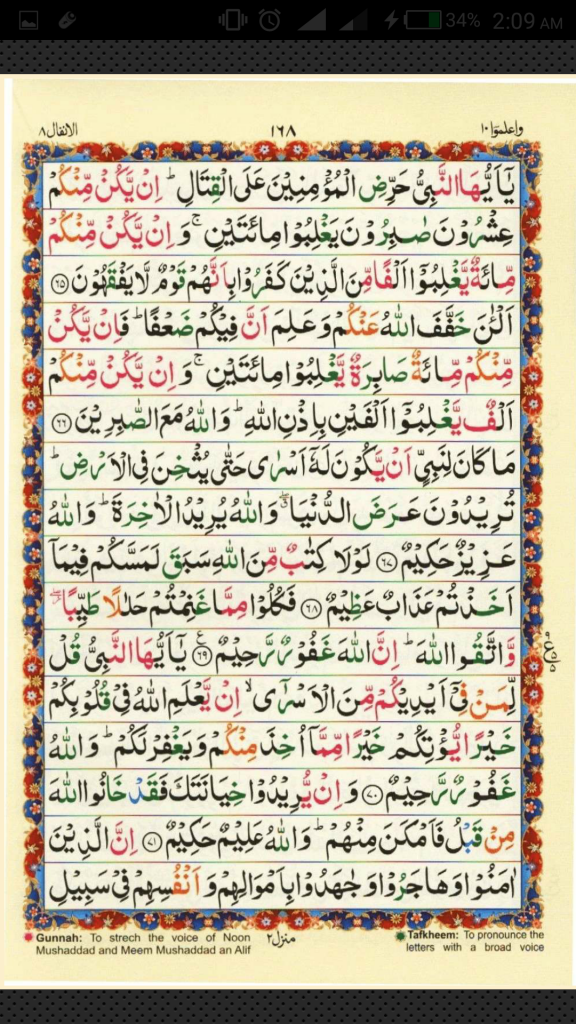 34% 2:09 AM
الانفال ٨ ١٦٨ واعلموٓا ١٠
يٰۤاَيُّهَا النَّبِىُّ حَرِّضِ الْمُؤْمِنِيْنَ عَلَى الْقِتَالِ ؕ اِنْ يَّكُنْ مِّنْكُمْ
عِشْرُوْنَ صٰبِرُوْنَ يَغْلِبُوْا مِائَتَيْنِ ۚ وَ اِنْ يَّكُنْ مِّنْكُمْ
مِّائَةٌ يَّغْلِبُوْۤا اَلْفًا مِّنَ الَّذِيْنَ كَفَرُوْا بِاَنَّهُمْ قَوْمٌ لَّا يَفْقَهُوْنَ ﴿٦٥﴾
اَلْـٰٔنَ خَفَّفَ اللّٰهُ عَنْكُمْ وَ عَلِمَ اَنَّ فِيْكُمْ ضَعْفًا ؕ فَاِنْ يَّكُنْ
مِّنْكُمْ مِّائَةٌ صَابِرَةٌ يَّغْلِبُوْا مِائَتَيْنِ ۚ وَ اِنْ يَّكُنْ مِّنْكُمْ
اَلْفٌ يَّغْلِبُوْۤا اَلْفَيْنِ بِاِذْنِ اللّٰهِ ؕ وَاللّٰهُ مَعَ الصّٰبِرِيْنَ ﴿٦٦﴾
مَا كَانَ لِنَبِىٍّ اَنْ يَّكُوْنَ لَهٗۤ اَسْرٰى حَتّٰى يُثْخِنَ فِى الْاَرْضِ ؕ
تُرِيْدُوْنَ عَرَضَ الدُّنْيَا ۖ وَاللّٰهُ يُرِيْدُ الْاٰخِرَةَ ؕ وَاللّٰهُ
عَزِيْزٌ حَكِيْمٌ ﴿٦٧﴾ لَوْلَا كِتٰبٌ مِّنَ اللّٰهِ سَبَقَ لَمَسَّكُمْ فِيْمَاۤ
اَخَذْتُمْ عَذَابٌ عَظِيْمٌ ﴿٦٨﴾ فَكُلُوْا مِمَّا غَنِمْتُمْ حَلٰلًا طَيِّبًا ۖ
وَّاتَّقُوا اللّٰهَ ؕ اِنَّ اللّٰهَ غَفُوْرٌ رَّحِيْمٌ ﴿٦٩﴾ يٰۤاَيُّهَا النَّبِىُّ قُلْ
لِّمَنْ فِىْۤ اَيْدِيْكُمْ مِّنَ الْاَسْرٰٓى ۙ اِنْ يَّعْلَمِ اللّٰهُ فِىْ قُلُوْبِكُمْ
خَيْرًا يُّؤْتِكُمْ خَيْرًا مِّمَّاۤ اُخِذَ مِنْكُمْ وَيَغْفِرْ لَكُمْ ؕ وَاللّٰهُ
غَفُوْرٌ رَّحِيْمٌ ﴿٧٠﴾ وَ اِنْ يُّرِيْدُوْا خِيَانَتَكَ فَقَدْ خَانُوا اللّٰهَ
مِنْ قَبْلُ فَاَمْكَنَ مِنْهُمْ ؕ وَاللّٰهُ عَلِيْمٌ حَكِيْمٌ ﴿٧١﴾ اِنَّ الَّذِيْنَ
اٰمَنُوْا وَهَاجَرُوْا وَ جٰهَدُوْا بِاَمْوَالِهِمْ وَ اَنْفُسِهِمْ فِىْ سَبِيْلِ
منزل ٢
Gunnah: To strech the voice of Noon
Mushaddad and Meem Mushaddad an Alif
Tafkheem: To pronounce the
letters with a broad voice